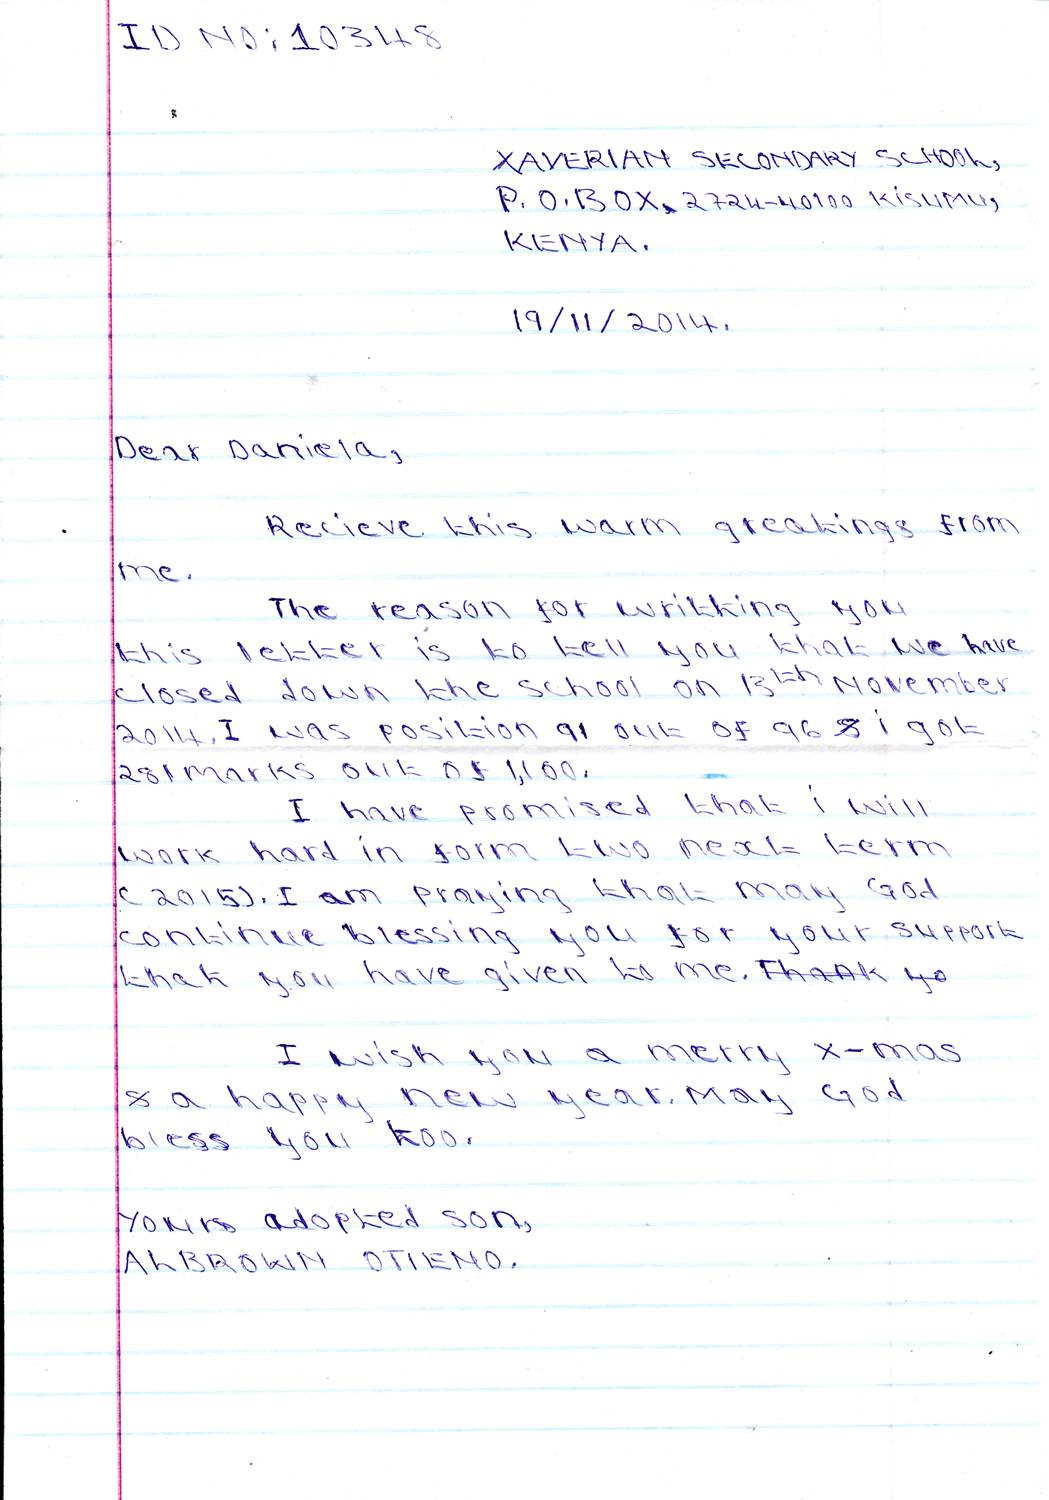 ID NO: 10348
XAVERIAN SECONDARY SCHOOL,
P. O. BOX, 2724-40100 KISUMU,
KENYA.
19/11/2014.
Dear Daniela,
Recieve this warm greatings from
me.
The reason for writting you
this letter is to tell you that we have
closed down the school on 13th November
2014. I was position 91 out of 96 & i got
281 marks out of 1,100.
I have promised that i will
work hard in form two next term
(2015). I am praying that may God
continue blessing you for your support
that you have given to me. Thank yo
I wish you a merry x-mas
& a happy new year. May God
bless you too.
Yours adopted son,
ALBROWN OTIENO.